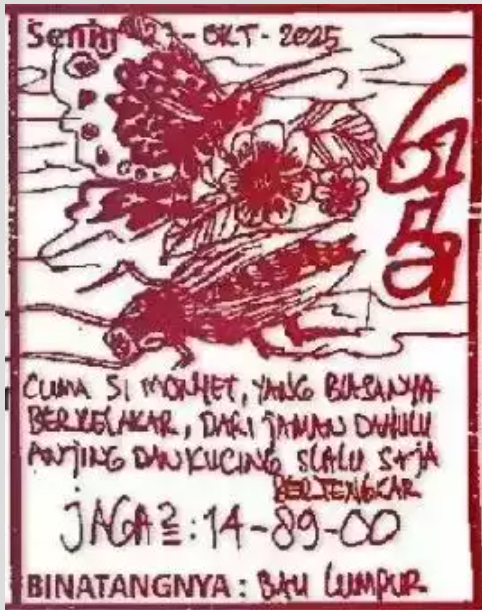 Senin 27-OKT-2025
CUMA SI MONYET, YANG BIASANYA
BERKELAKAR, DARI JAMAN DAHULU
ANJING DAN KUCING SLALU S+JA
BERTENGKAR
JAGA2: 14-89-00
BINATANGNYA : BAU LUMPUR